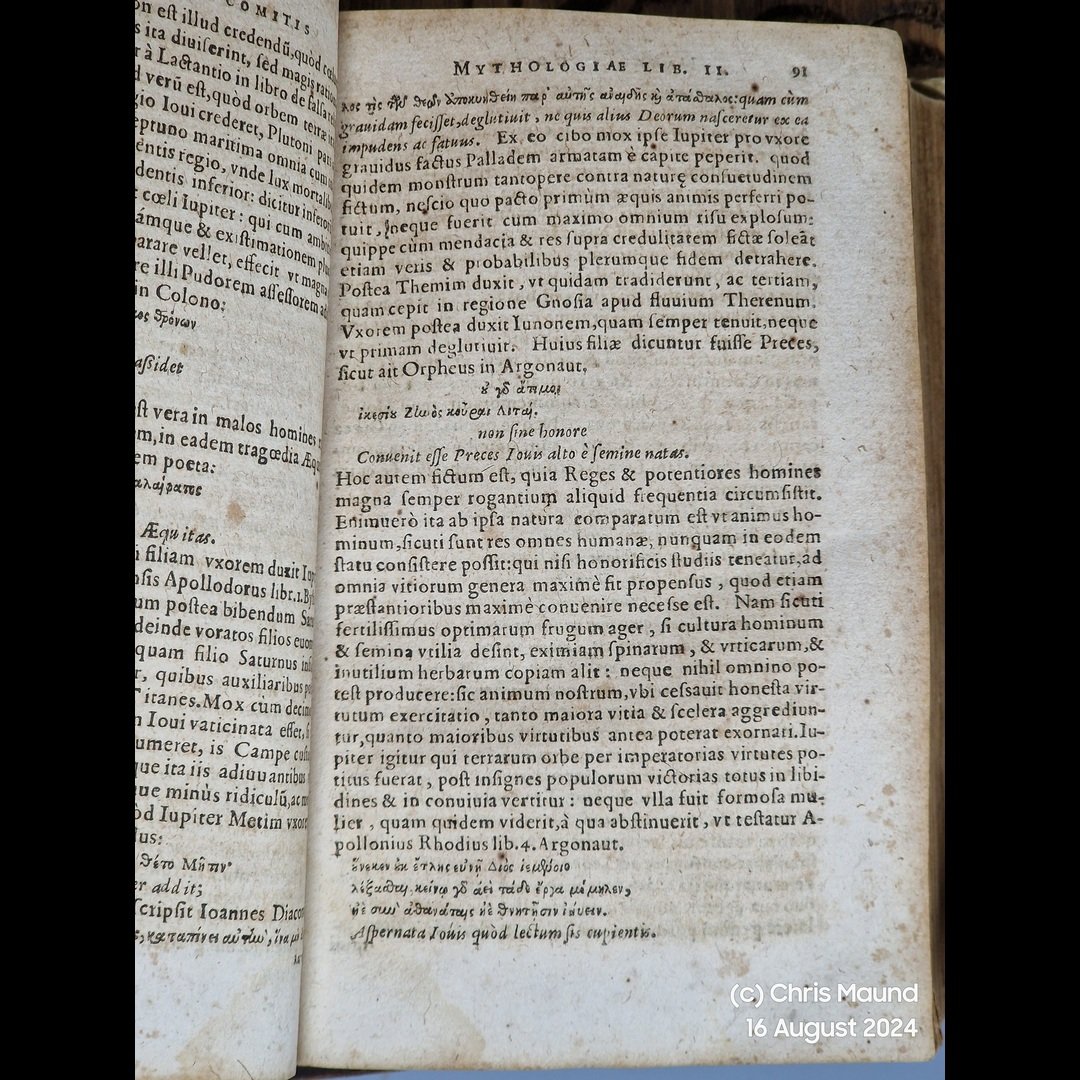 COMITIS
on est illud credendũ, quòd
ita diuiserint, sed magis
à Lactantio in libro de falsa
verũ est, quòd orbem terræ
Ioui crederet, Plutoni
maritima omnia cum
regio, vnde lux
inferior: dicitur
cœli Iupiter: qui cum
& existimationem
vellet, effecit vt
illi Pudorem assessorem
in Colono:
θρόνων
assidet
est vera in malos homines
in eadem tragœdia
em poeta:
Æquitas.
filiam vxorem duxit
Apollodorus libr. 1.
um postea bibendum
deinde voratos filios
quam filio Saturnus
, quibus auxiliaribus
Titanes. Mox cùm
Ioui vaticinata esset,
, is Campe
que ita iis adiuuantibus
minùs ridiculũ,
Iupiter Metim
θέτο Μῆτιν
addit;
scripsit Ioannes
καταπίνει αὐτὴν, ἵνα
MYTHOLOGIAE LIB. II. 91
quam cùm
grauidam fecisset, deglutiuit, ne quis alius Deorum nasceretur ex ea
impudens ac fatuus. Ex eo cibo mox ipse Iupiter pro vxore
grauidus factus Palladem armatam è capite peperit. quod
quidem monstrum tantopere contra naturę consuetudinem
fictum, nescio quo pacto primùm æquis animis perferri po-
tuit, neque fuerit cum maximo omnium risu explosum:
quippe cùm mendacia & res supra credulitatem fictæ soleãt
etiam veris & probabilibus plerumque fidem detrahere.
Postea Themim duxit, vt quidam tradiderunt, ac tertiam,
quam cepit in regione Gnosia apud fluuium Therenum.
Vxorem postea duxit Iunonem, quam semper tenuit, neque
vt primam deglutiuit. Huius filiæ dicuntur fuisse Preces,
sicut ait Orpheus in Argonaut.
οὐ γὰρ ἄτιμοι
ἱκεσίου Ζηνὸς κοῦραι Λιταί.
non sine honore
Conuenit esse Preces Iouis alto è semine natas.
Hoc autem fictum est, quia Reges & potentiores homines
magna semper rogantium aliquid frequentia circumsistit.
Enimuerò ita ab ipsa natura comparatum est vt animus ho-
minum, sicuti sunt res omnes humanæ, nunquam in eodem
statu consistere possit: qui nisi honorificis studiis teneatur, ad
omnia vitiorum genera maximè fit propensus, quod etiam
præstantioribus maximè conuenire necesse est. Nam sicuti
fertilissimus optimarum frugum ager, si cultura hominum
& semina vtilia desint, eximiam spinarum, & vrticarum, &
inutilium herbarum copiam alit: neque nihil omnino po-
test producere: sic animum nostrum, vbi cessauit honesta vir-
tutum exercitatio, tanto maiora vitia & scelera aggrediun-
tur, quanto maioribus virtutibus antea poterat exornati. Iu-
piter igitur qui terrarum orbe per imperatorias virtutes po-
titus fuerat, post insignes populorum victorias totus in libi-
dines & in conuiuia vertitur: neque vlla fuit formosa mu-
lier, quam quidem viderit, à qua abstinuerit, vt testatur A-
pollonius Rhodius lib. 4. Argonaut.
οὕνεκεν οὐκ ἔτλης εὐνῇ Διὸς ἱεμένοιο
λέξασθαι. κείνῳ γὰρ ἀεὶ τάδε ἔργα μέμηλεν,
ἠὲ σὺν ἀθανάταις ἠὲ θνητῇσιν ἰαύειν.
Aspernata Iouis quòd lectum sis cupientis.
(c) Chris Maund
16 August 2024